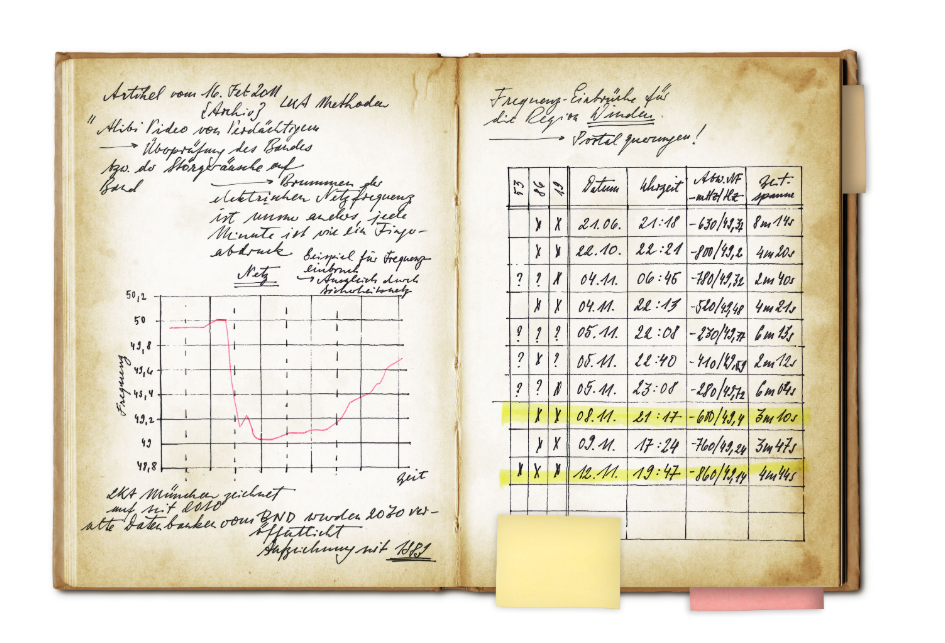 Artikel vom 16. Feb 2011
[Archiv] LKA Methoden
"Alibi Video von Verdächtigem
→ Überprüfung des Bandes
bzw. der Störgeräusche auf
Band
→ Brummen der
elektrischen Netzfrequenz
ist immer anders, jede
Minute ist wie ein Finger-
abdruck
Beispiel für Frequenz-
einbruch
→ Ausgleich durch
Sicherheitsnetz
Netz
50,2
50
49,8
49,6
49,4
49,2
49
48,8
Frequenz
Zeit
LKA München zeichnet
auf seit 2010
alte Datenbanken vom BND wurden 2030 ver-
öffentlicht
Aufzeichnung seit
Frequenz-Einbrüche für
die Region Winden.
→ Portal gezwungen!
Datum Uhrzeit Abw. NF -mHz/Hz Zeit-spanne
X X 21.06. 21:18 8m14s
X X 22.10. 22:21 -800/49,2 4m20s
? ? X 04.11. 06:45 2m40s
X X 04.11. 22:13 -520/49,48 4m21s
? ? ? 05.11. 22:08 -230/49,77 6m13s
? X ? 05.11. 22:40 -410/49,59 2m12s
? ? X 05.11. 23:08 -280/49,72 6m04s
X X 08.11. 21:17 3m10s
X X 09.11. 17:24 -760/49,24 3m47s
X X X 12.11. 19:47 -860/49,14 4m44s